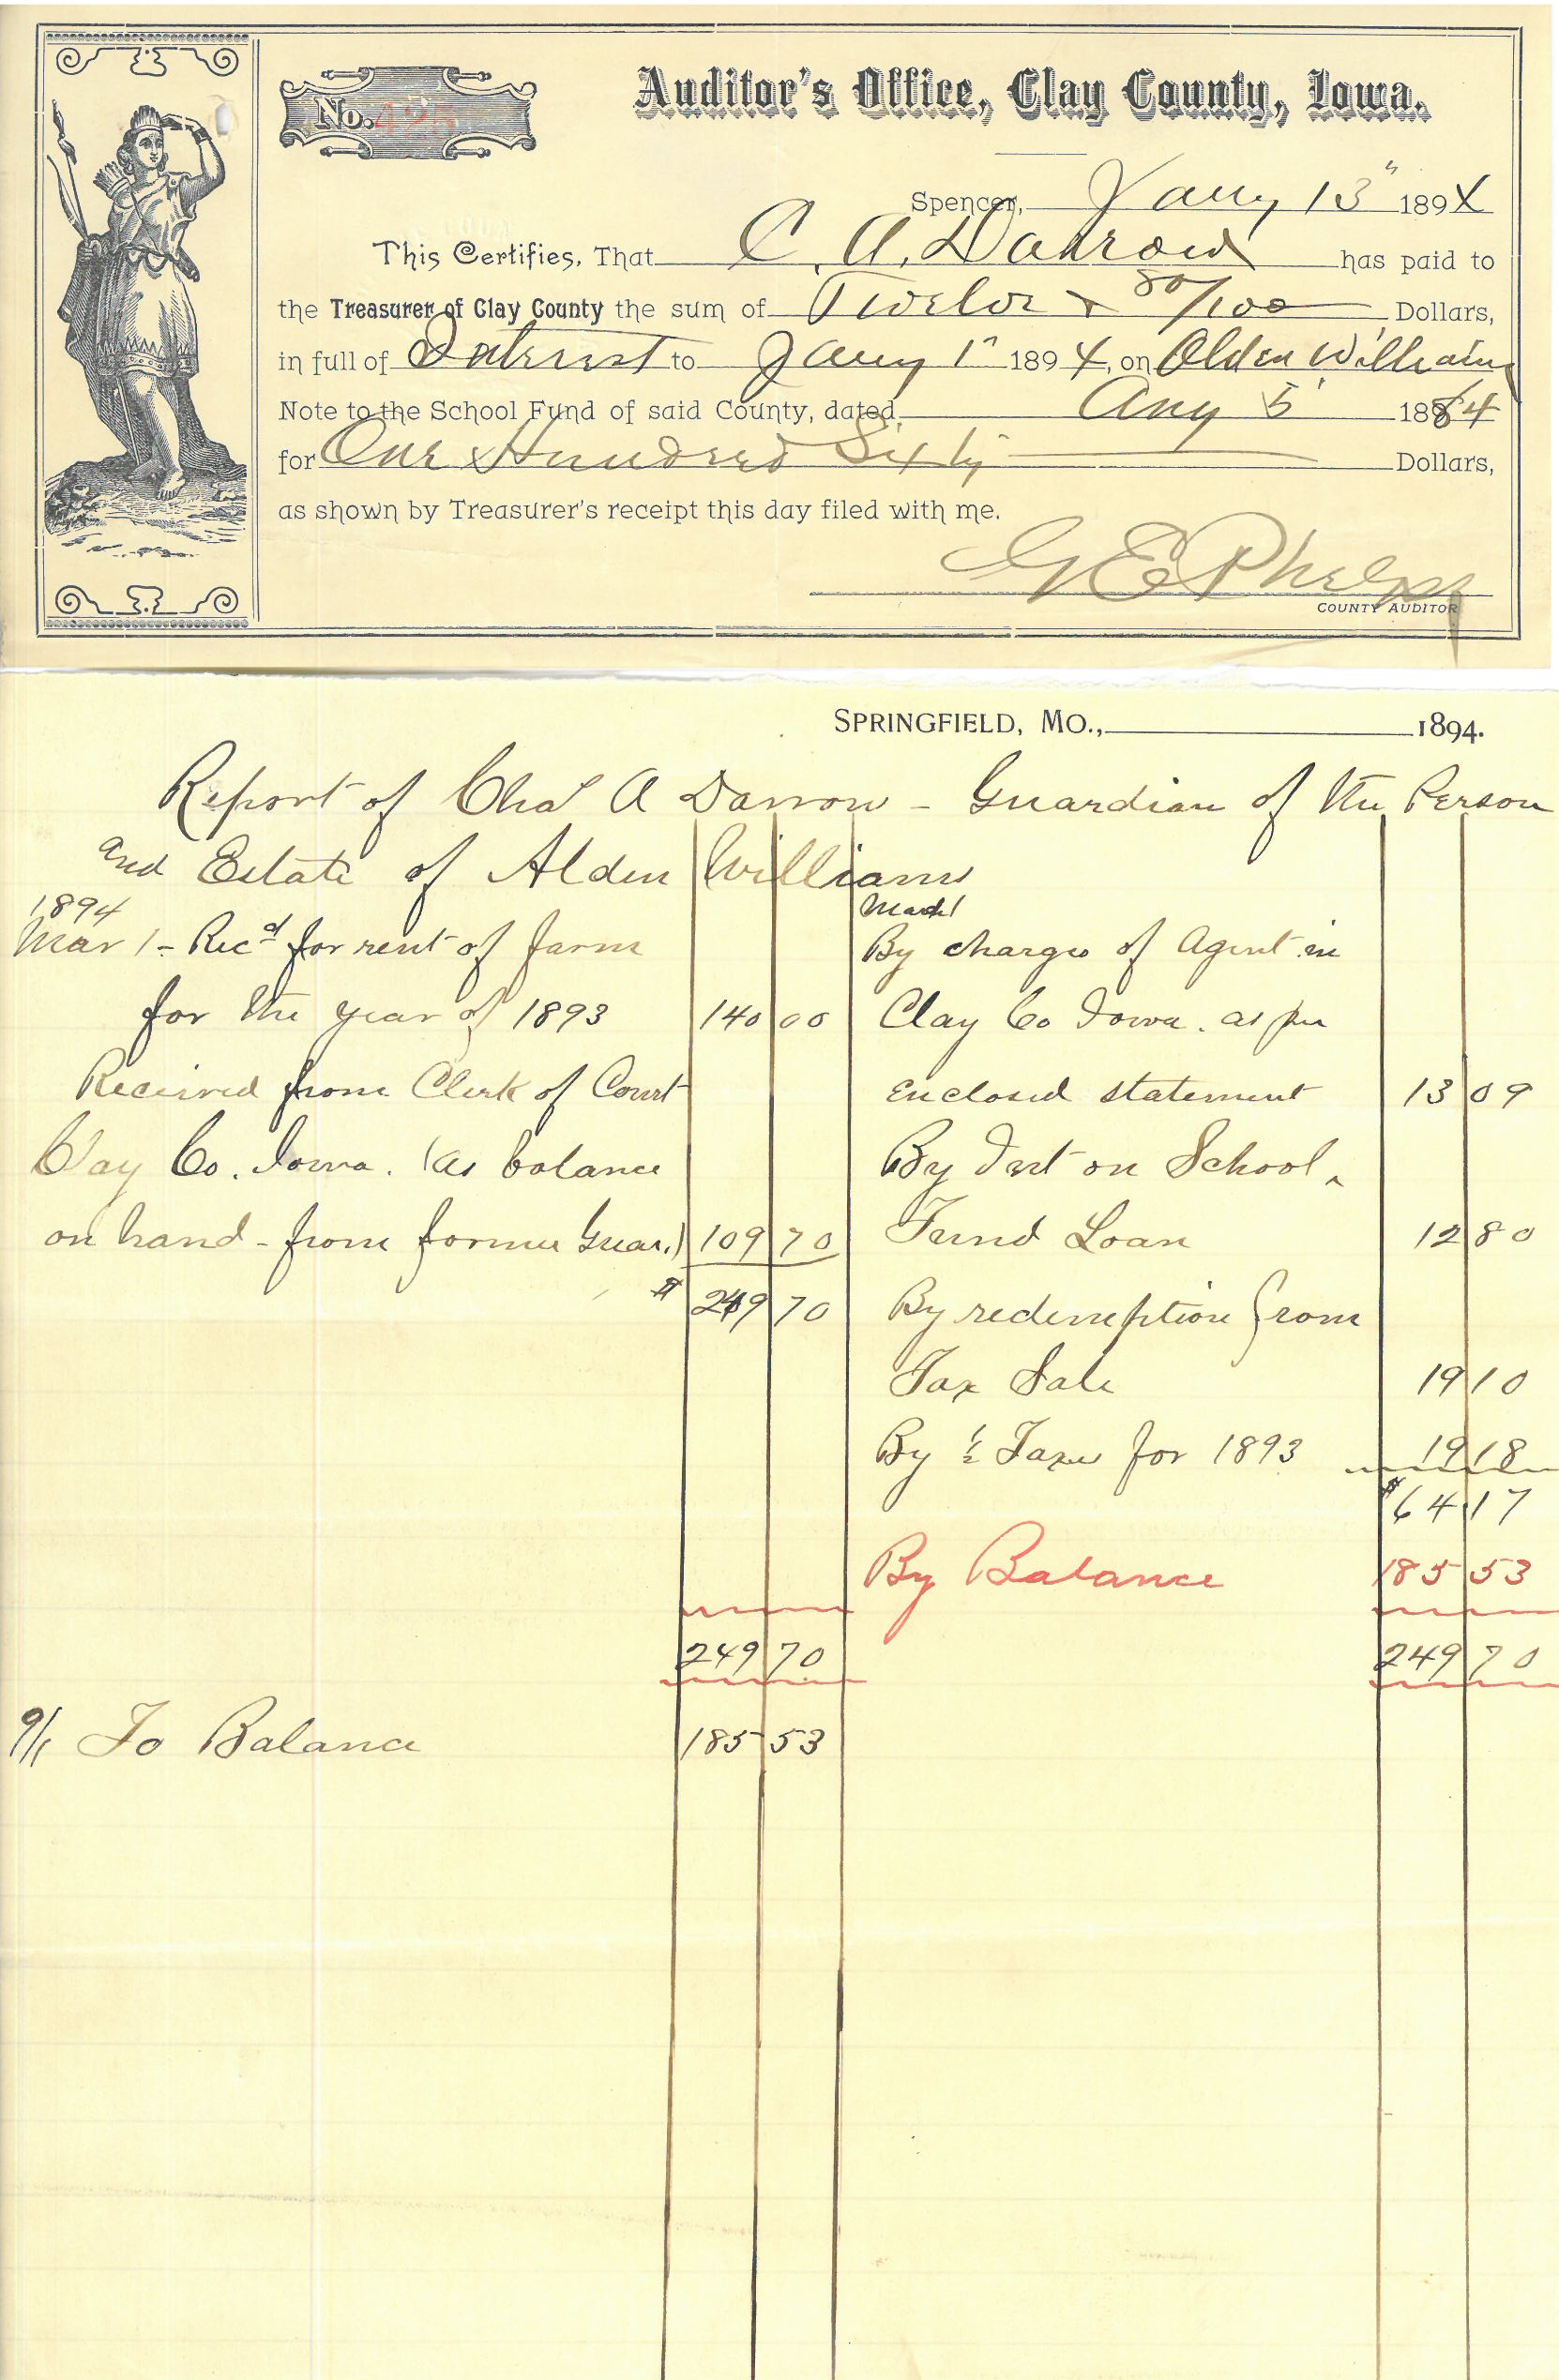 Auditor's Office, Clay County, Iowa.
No. 425
Spencer, Jany 13" 1894
This Certifies, That C. A. Darrow has paid to
the Treasurer of Clay County the sum of Twelve & 80/100 Dollars,
in full of Interest to Jany 1" 1894, on Olden Williams
Note to the School Fund of said County, dated, Aug 5' 1884
for One Hundred Sixty Dollars,
as shown by Treasurer's receipt this day filed with me.
G E Phelps
COUNTY AUDITOR
SPRINGFIELD, MO., 1894.
Report of Chas A Darrow - Guardian of the Person
and Estate of Alden Williams
1894
Mar 1 - Recd for rent of farm
for the year of 1893 140 00
Received from Clerk of Court
Clay Co. Iowa. (as balance
on hand - from former Guar.) 109 70
$ 249 70
March 1
By charges of Agent in
Clay Co Iowa. as per
enclosed statement 13 09
By Int on School
Fund Loan 12 80
By redemption from
Tax Sale 19 10
By ½ Taxes for 1893 19 18
$ 64 17
By Balance 185 53
249 70 249 70
9/1 To Balance 185 53